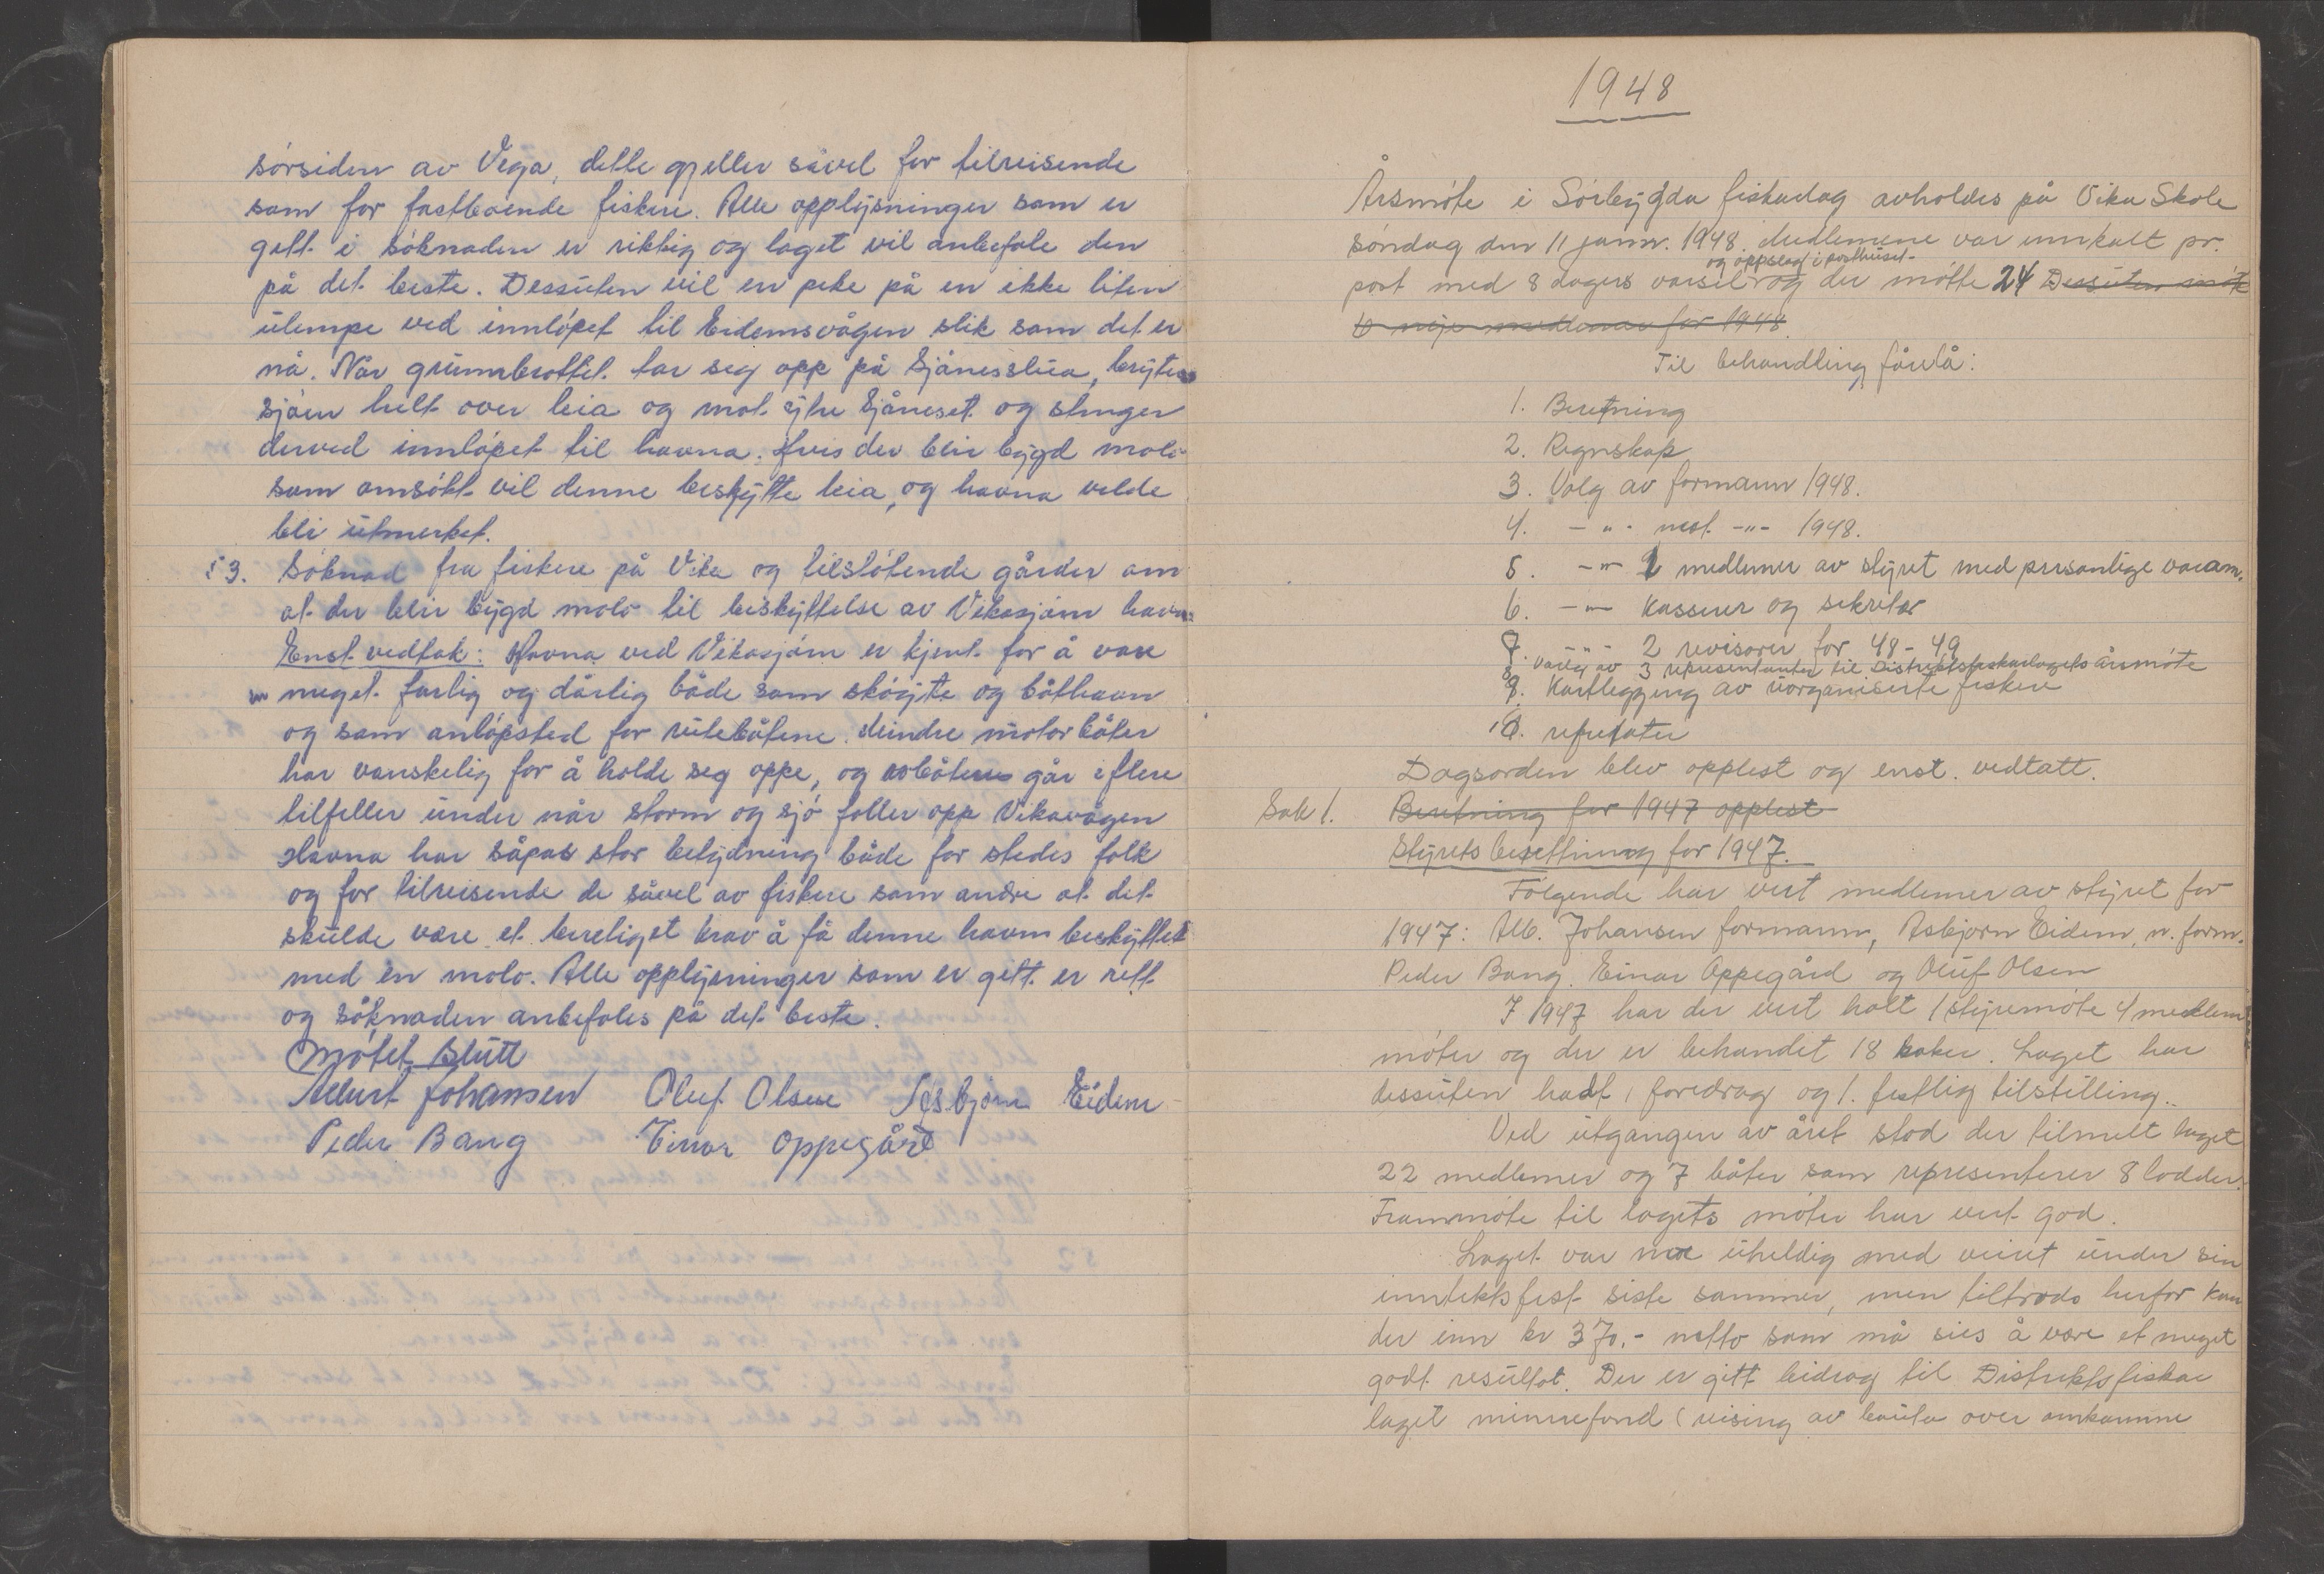 sørsiden av Vega, dette gjeller såvel for tilreisende
som for fastboende fiskere. Alle opplysninger som er
gitt i søknaden er riktig og laget vil anbefale den
på det beste. Dessuten vil en peke på en ikke liten
ulempe ved innløpet til Eidemsvågen slik som det er
nå. Når grunnbrottet tar seg opp på Sjånesslua, bryter
sjøen helt over leia og mot ytre Sjåneset og stenger
derved innløpet til havna. Hvis der blir bygd molo
som omsøkt vil denne beskytte leia, og havna vilde
bli utmerket.
S 3. Søknad fra fiskere på Vika og tilstøtende gårder om
at der blir bygd molo til beskyttelse av Vikasjøen havn
Enst. vedtak: Havna ved Vikasjøen er kjent for å være
en meget farlig og dårlig både som skøyte og båthavn
og som anløpsted for rutebåtene. Mindre motorbåter
har vanskelig for å holde seg oppe, og robåtene går i flere
tilfeller under når storm og sjø foller opp Vikavågen
Havna har såpas stor betydning både for stedes folk
og for tilreisende de såvel av fiskere som andre at det
skulde være et beretiget krav å få denne havn beskyttet
med en molo. Alle opplysninger som er gitt er rett
og søknaden anbefales på det beste.
Møtet slutt
Albert Johansen Oluf Olsen Asbjørn Eidem
Peder Bang Einar Oppegård
1948
Årsmøte i Sørbygda fiskarlag avholdes på Vika Skole
søndag den 11 janr. 1948. Medlemene var innkalt pr.
og oppslag i posthuset
post med 8 dagers varsel og der møtte 24 Dessuten møtte
6 nye medlemer for 1948
Til behandling forelå:
1. Beretning
2. Regnskap
3. Valg av formann 1948.
4. -"- nest -"- 1948.
5. -"- medlemer av styret med personlige varam.
6. -"- Kasserer og sekretær
7. -"- 2 revisorer for 48-49
8. Valg av 3 representanter til Distriktsfiskarlagets årsmøte
9. Kartlegging av uorganiserte fiskere
10. referater
Dagsorden blev opplest og enst. vedtatt.
Sak 1. Beretning for 1947 opplest
Styrets beretning for 1947.
Følgende har vert medlemer av styret for
1947: Alb. Johansen formann, Asbjørn Eidem, n. form.
Peder Bang, Einar Oppegård og Oluf Olsen
I 1947 har der vert holt 1 styremøte 4 medlems
møter og der er behandet 18 saker. Laget har
dessuten hadt 1 foredrag og 1. festlig tilstilling.
Ved utgangen av året stod der tilmelt laget
22 medlemer og 7 båter som representerer 8 lodder.
Frammøte til lagets møter har vert god.
Laget var uheldig med veiret under sin
inntektsfest siste sommer, men tiltross herfor kom
der inn kr 370.- netto som må sies å være et meget
godt resultat. Der er gitt bidrag til Distriktsfiskar
laget minnefond (reising av bauta over omkomne